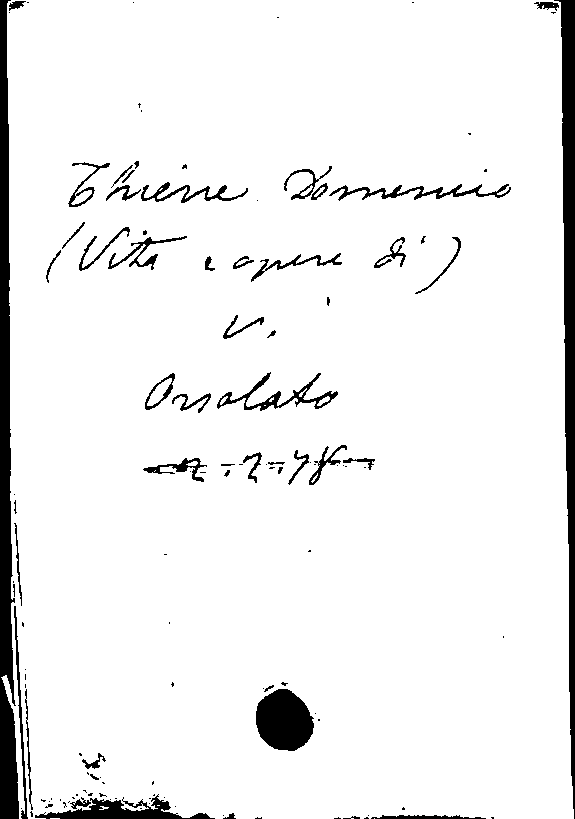 Thiene Domenico
(Vita e opere di)
V.
Orsolato